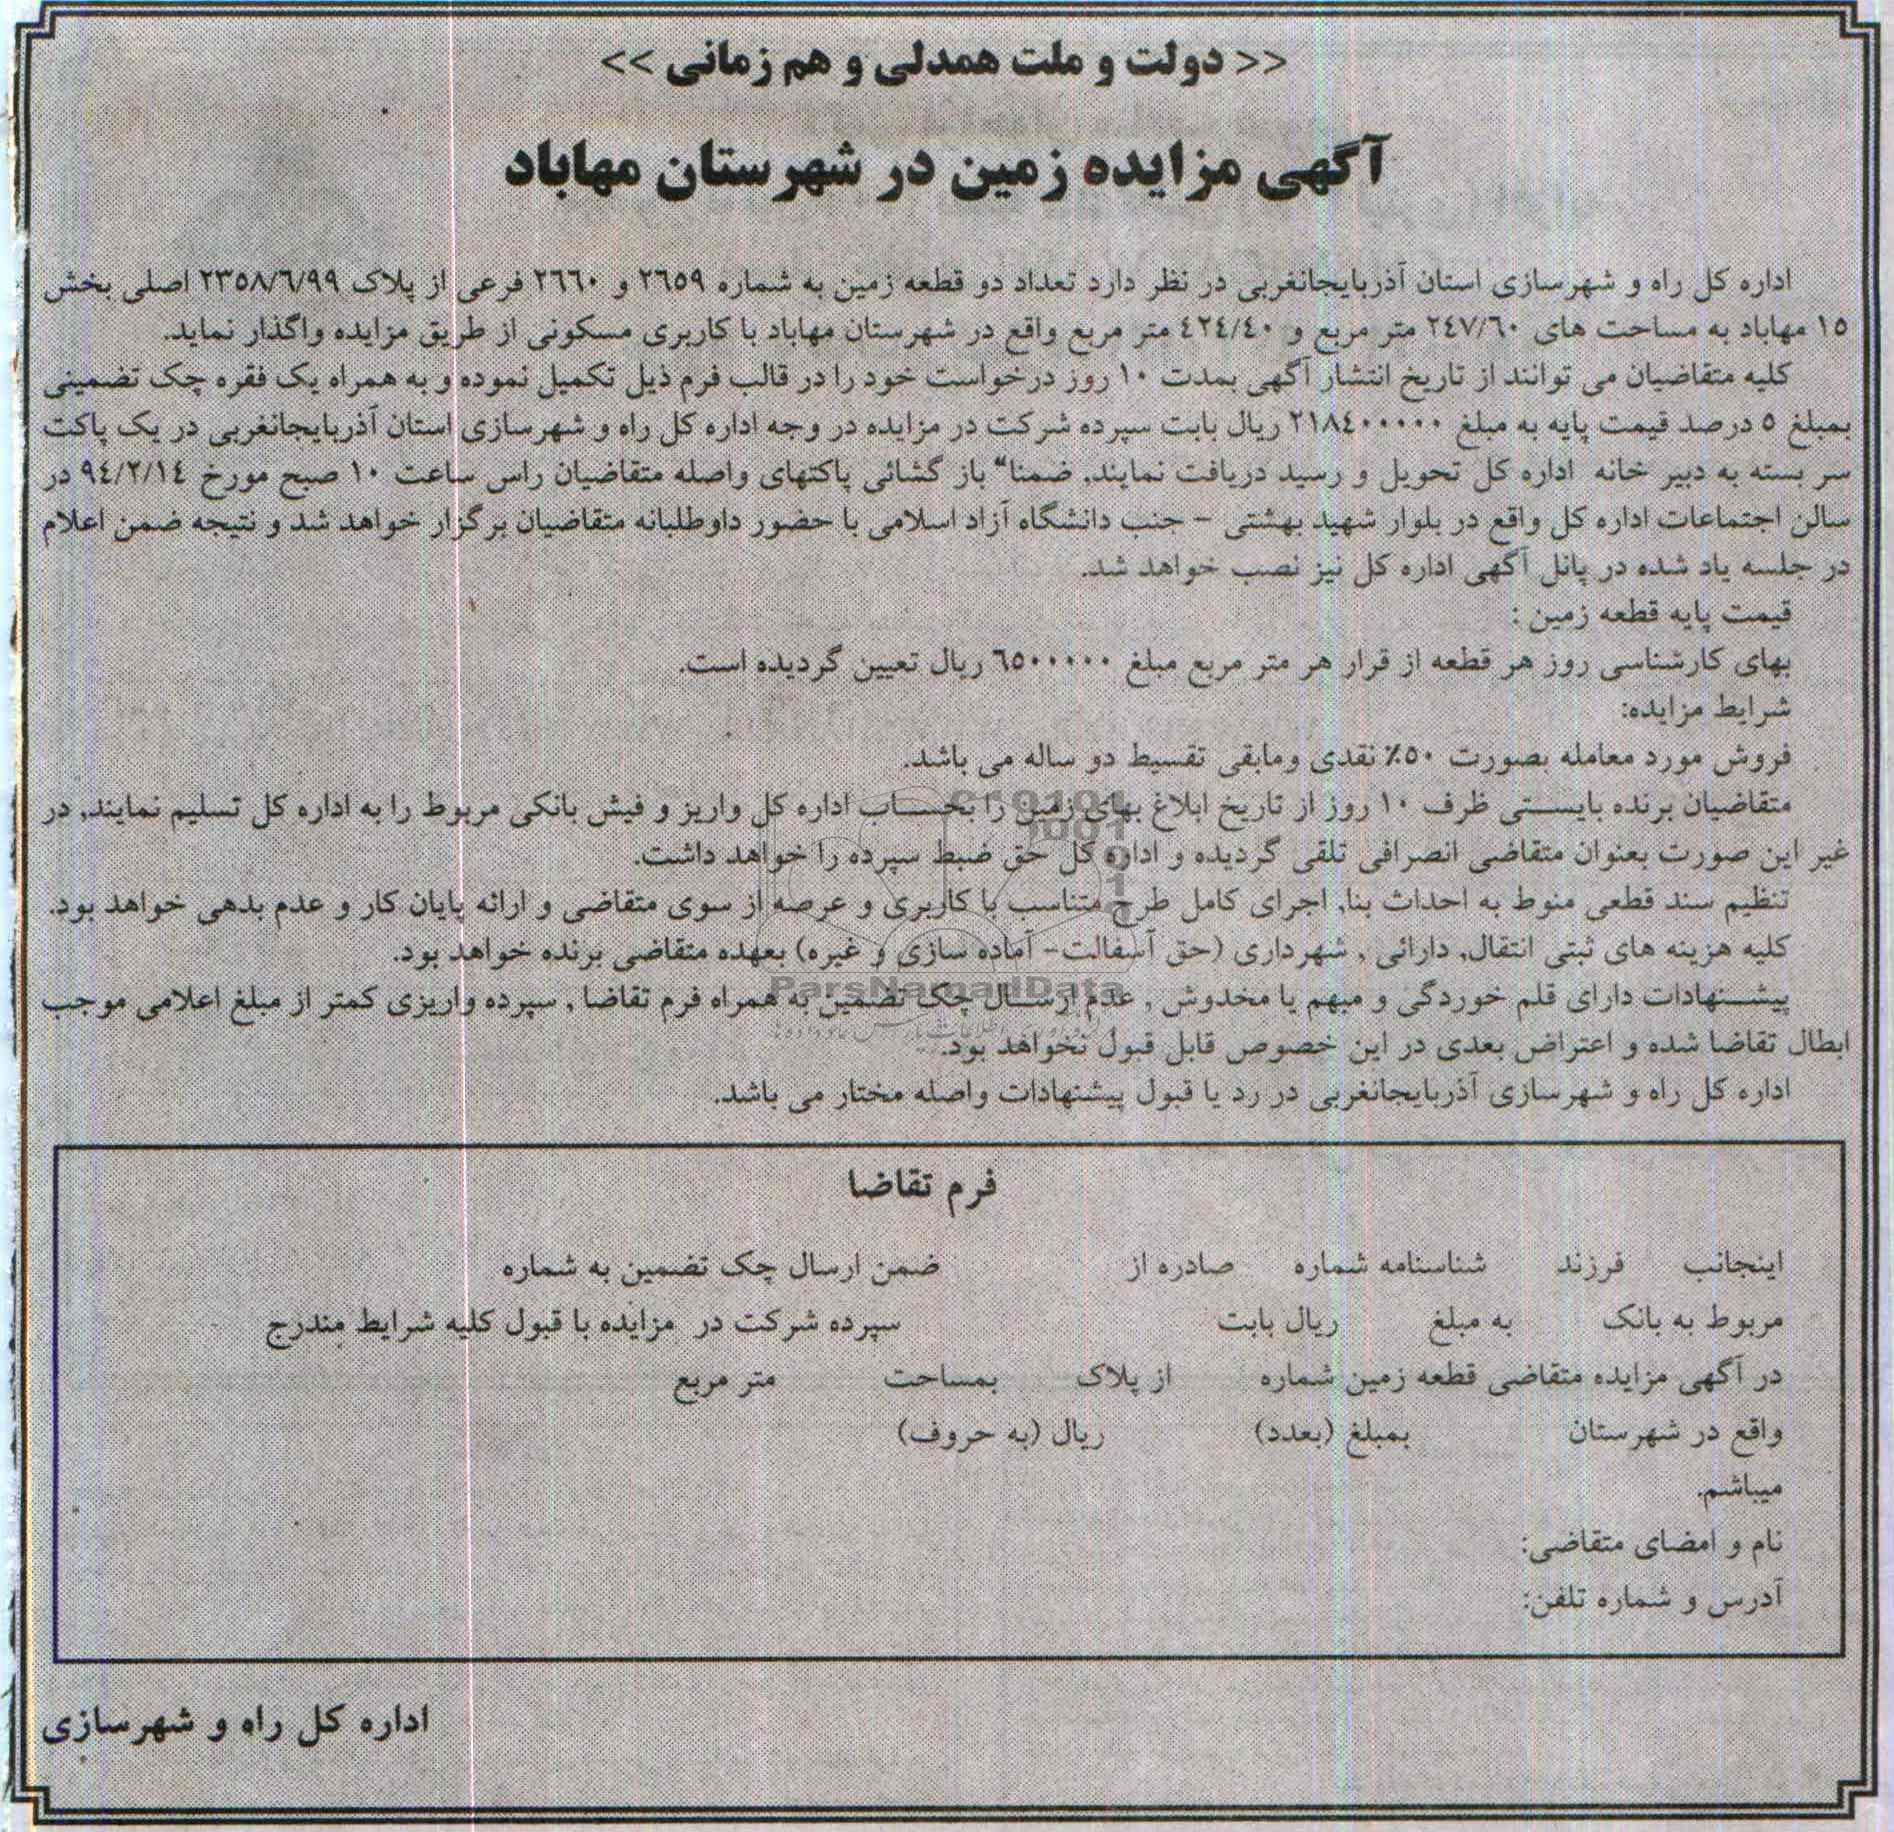 << دولت و ملت همدلی و هم زمانی >>
آگهی مزایده زمین در شهرستان مهاباد
اداره کل راه و شهرسازی استان آذربایجانغربی در نظر دارد تعداد دو قطعه زمین به شماره ٢٦٥٩ و ٢٦٦٠ فرعی از پلاک ٢٣٥٨/٦/٩٩ اصلی بخش
١٥ مهاباد به مساحت های ٢٤٧/٦٠ متر مربع و ٤٢٤/٤٠ متر مربع واقع در شهرستان مهاباد با کاربری مسکونی از طریق مزایده واگذار نماید.
کلیه متقاضیان می توانند از تاریخ انتشار آگهی بمدت ١٠ روز درخواست خود را در قالب فرم ذیل تکمیل نموده و به همراه یک فقره چک تضمینی
بمبلغ ٥ درصد قیمت پایه به مبلغ ٢١٨٤٠٠٠٠٠ ریال بابت سپرده شرکت در مزایده در وجه اداره کل راه و شهرسازی استان آذربایجانغربی در یک پاکت
سر بسته به دبیر خانه اداره کل تحویل و رسید دریافت نمایند, ضمنا" باز گشائی پاکتهای واصله متقاضیان راس ساعت ١٠ صبح مورخ ٩٤/٢/١٤ در
سالن اجتماعات اداره کل واقع در بلوار شهید بهشتی - جنب دانشگاه آزاد اسلامی با حضور داوطلبانه متقاضیان برگزار خواهد شد و نتیجه ضمن اعلام
در جلسه یاد شده در پانل آگهی اداره کل نیز نصب خواهد شد.
قیمت پایه قطعه زمین :
بهای کارشناسی روز هر قطعه از قرار هر متر مربع مبلغ ٦٥٠٠٠٠٠ ریال تعیین گردیده است.
شرایط مزایده:
فروش مورد معامله بصورت ٥٠٪ نقدی ومابقی تقسیط دو ساله می باشد.
متقاضیان برنده بایستی ظرف ١٠ روز از تاریخ ابلاغ بهای زمین را بحساب اداره کل واریز و فیش بانکی مربوط را به اداره کل تسلیم نمایند, در
غیر این صورت بعنوان متقاضی انصرافی تلقی گردیده و اداره کل حق ضبط سپرده را خواهد داشت.
تنظیم سند قطعی منوط به احداث بنا, اجرای کامل طرح متناسب با کاربری و عرصه از سوی متقاضی و ارائه پایان کار و عدم بدهی خواهد بود.
کلیه هزینه های ثبتی انتقال, دارائی , شهرداری (حق آسفالت- آماده سازی و غیره) بعهده متقاضی برنده خواهد بود.
پیشنهادات دارای قلم خوردگی و مبهم یا مخدوش , عدم ارسال چک تضمین به همراه فرم تقاضا , سپرده واریزی کمتر از مبلغ اعلامی موجب
ParsNamadData
ابطال تقاضا شده و اعتراض بعدی در این خصوص قابل قبول نخواهد بود.
اداره کل راه و شهرسازی آذربایجانغربی در رد یا قبول پیشنهادات واصله مختار می باشد.
فرم تقاضا
اینجانب فرزند شناسنامه شماره صادره از ضمن ارسال چک تضمین به شماره
مربوط به بانک به مبلغ ریال بابت سپرده شرکت در مزایده با قبول کلیه شرایط مندرج
در آگهی مزایده متقاضی قطعه زمین شماره از پلاک بمساحت متر مربع
واقع در شهرستان بمبلغ (بعدد) ریال (به حروف)
میباشم.
نام و امضای متقاضی:
آدرس و شماره تلفن:
اداره کل راه و شهرسازی